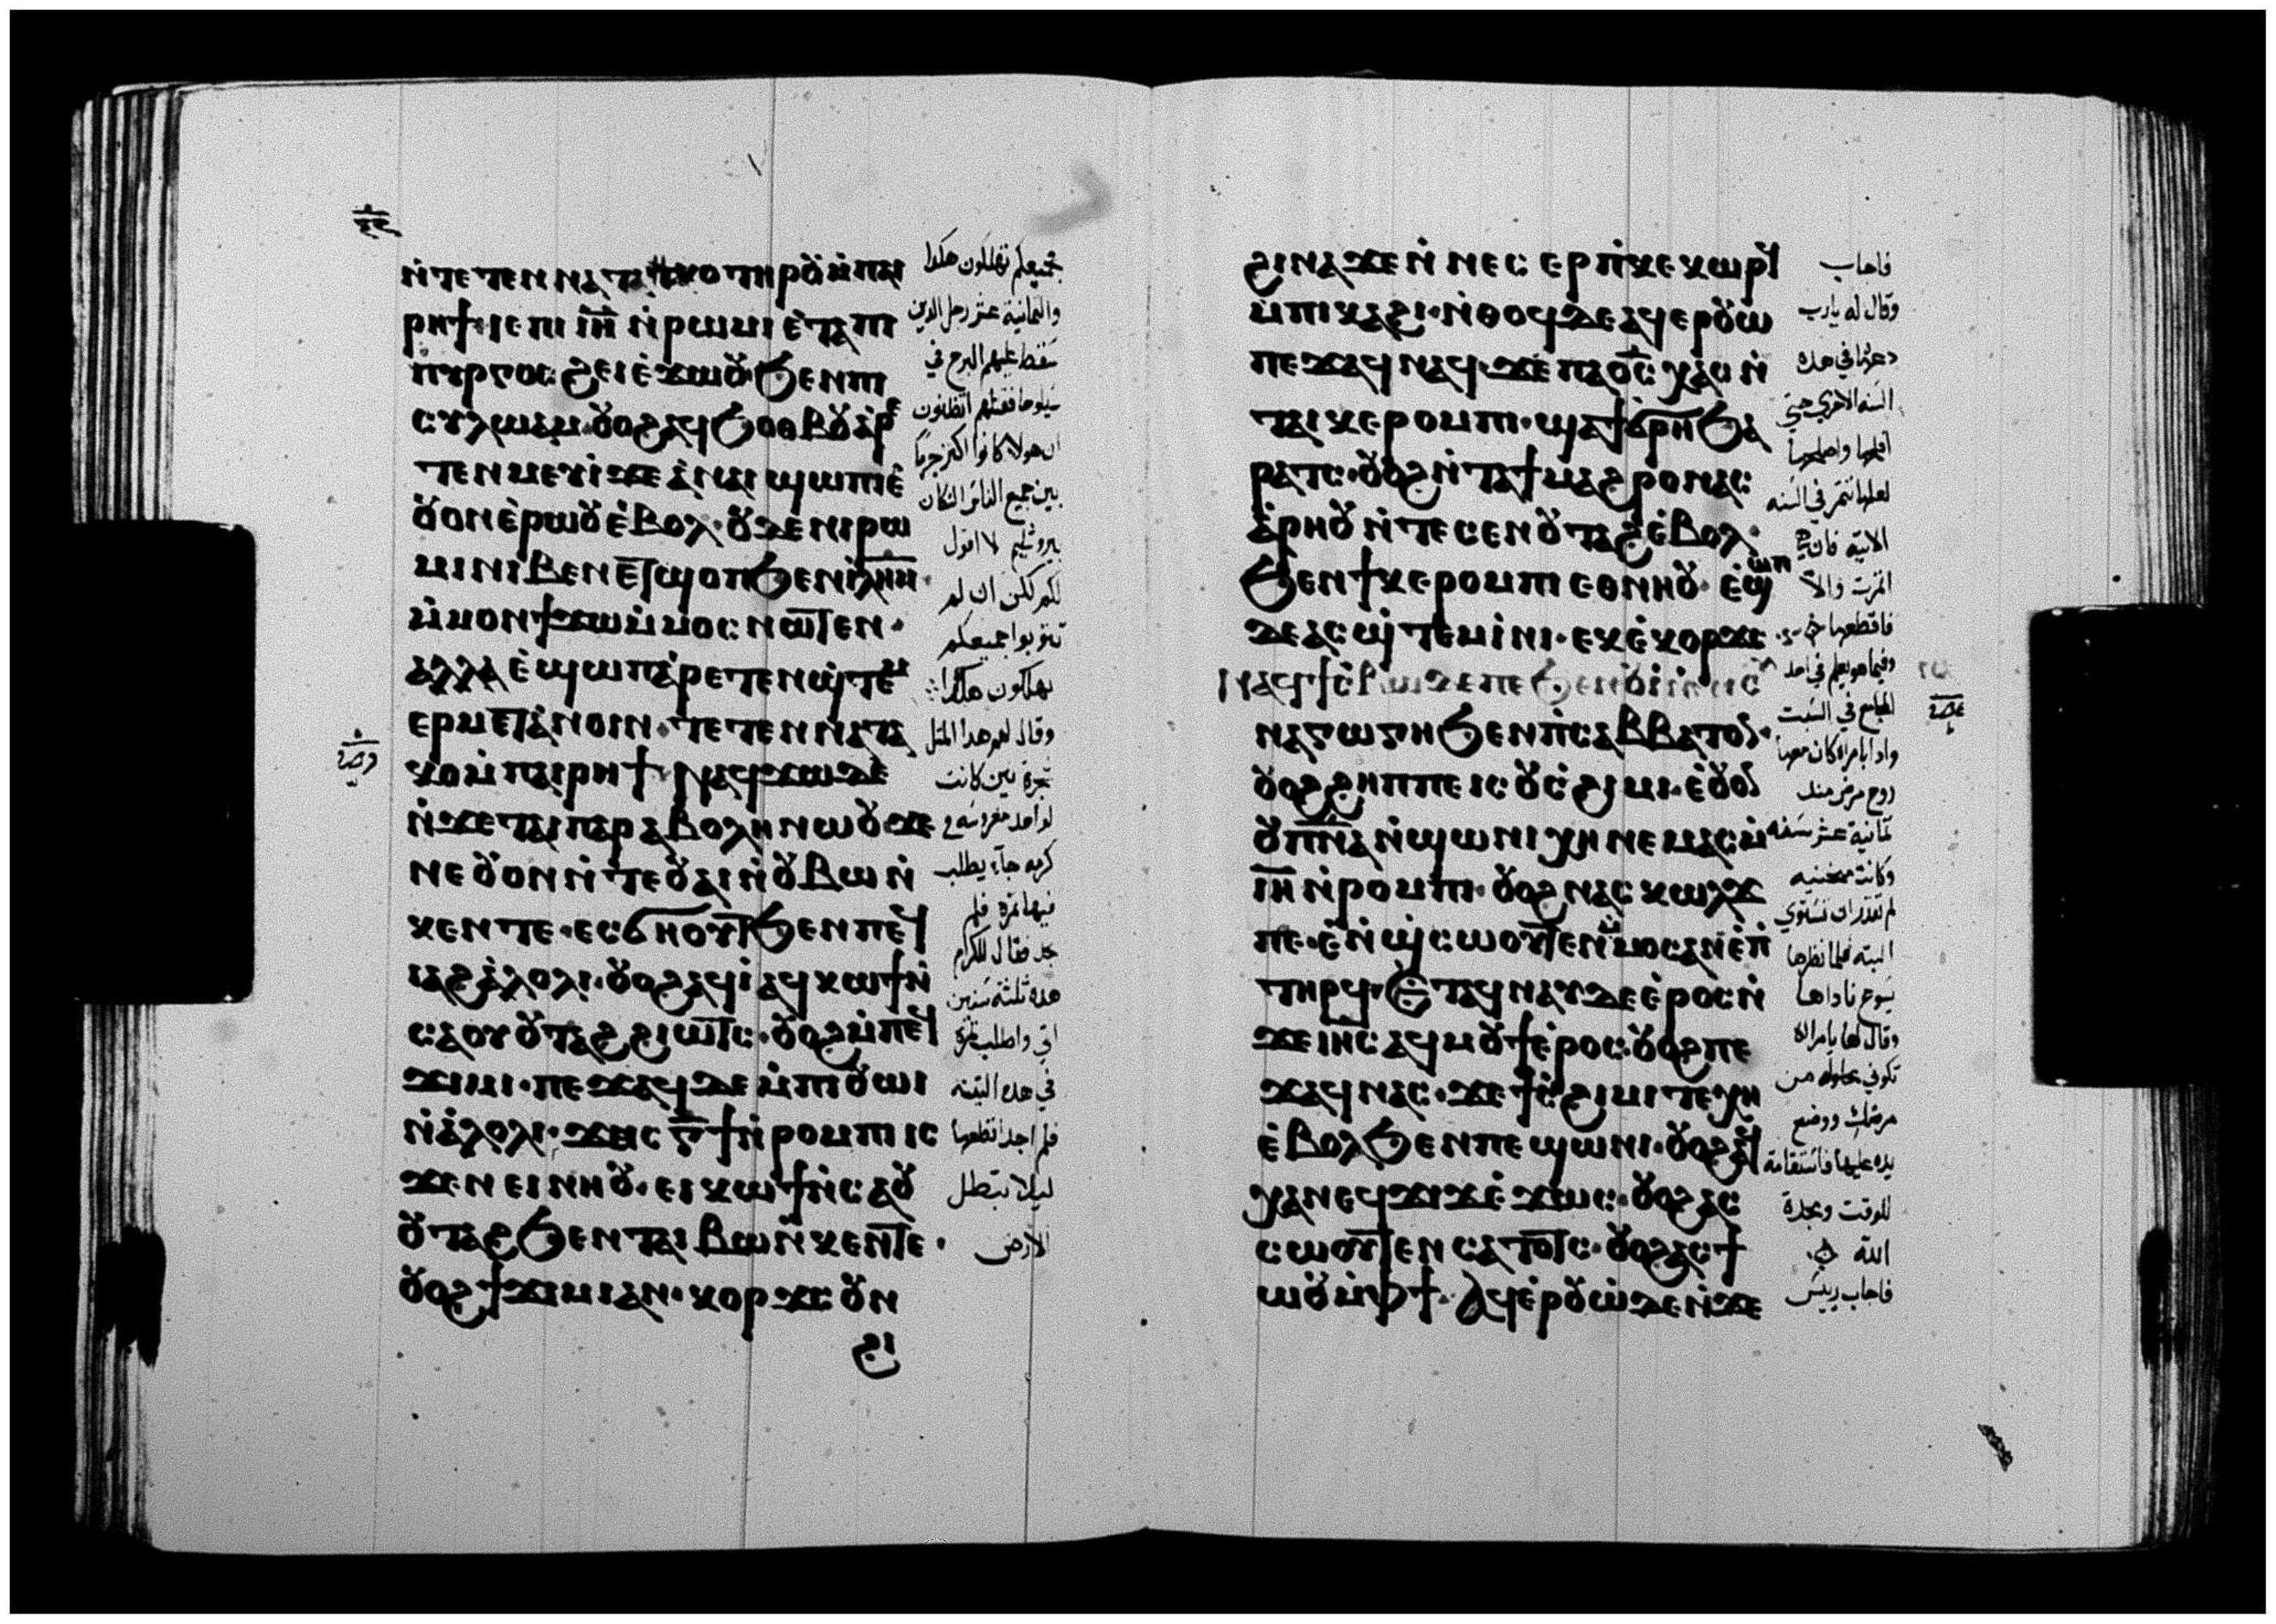 ⲛ̀ⲧⲉⲧⲉⲛⲛⲁⲧⲁⲕⲟ ⲧⲏⲣⲟⲩ ⲙ̀ⲡⲁⲓ
ⲣⲏϯ· ⲓⲉ ⲡⲓ ⲓ̅ⲏ̅ ⲛ̀ⲣⲱⲙⲓ ⲉ̀ⲧⲁ ⲡⲓ
ⲡⲩⲣⲅⲟⲥ ϩⲉⲓ ⲉ̀ϫⲱⲟⲩ· ϧⲉⲛ ⲡⲓ
ⲥⲩⲗⲱⲁⲙ· ⲟⲩⲟϩ ⲁϥϧⲟⲑⲃⲟⲩ ⲁ̀ⲣⲉ
ⲧⲉⲛⲙⲉⲩⲓ̀ ϫⲉ ⲁ̀ⲛⲁⲓ ϣⲱⲡⲓ ⲉ̀
ⲟⲩⲟⲛ ⲉ̀ⲣⲱⲟⲩ ⲉ̀ⲃⲟⲗ· ⲟⲩⲇⲉ ⲛⲓⲣⲱ
ⲙⲓ ⲛⲓⲃⲉⲛ ⲉⲧϣⲟⲡ ϧⲉⲛ ⲓ̀ⲗ̅ⲏ̅ⲙ̅·
ⲙ̀ⲙⲟⲛ ϯϫⲱ ⲙ̀ⲙⲟⲥ ⲛⲱⲧⲉⲛ·
ⲁⲗⲗⲁ ⲉ̀ϣⲱⲡ ⲁ̀ⲣⲉⲧⲉⲛϣ̀ⲧⲉⲙ
ⲉⲣⲙⲉⲧⲁ̀ⲛⲟⲓⲛ· ⲧⲉⲧⲉⲛⲛⲁⲧⲁ
ⲕⲟ ⲙ̀ⲡⲁⲓⲣⲏϯ· ⲛⲁϥϫⲱ ⲇⲉ
ⲛ̀ϫⲉ ⲧⲁⲓⲡⲁⲣⲁⲃⲟⲗⲏ ⲛⲱⲟⲩ· ϫⲉ
ⲛⲉ ⲟⲩⲟⲛ ⲛ̀ⲧⲉ ⲟⲩⲁⲓ ⲛ̀ⲟⲩⲃⲱ ⲛ̀
ⲕⲉⲛⲧⲉ· ⲉⲥϭⲏⲟⲩⲧ ϧⲉⲛ ⲡⲉϥ
ⲓⲁϩⲁ̀ⲗⲟⲗⲓ· ⲟⲩⲟϩ ⲁϥⲓ̀ ⲁϥⲕⲱϯ ⲛ̀
ⲥⲁ ⲟⲩⲟⲩⲧⲁϩ ϩⲓⲱⲧⲥ· ⲟⲩⲟϩ ⲙ̀ⲡⲉϥ
ϫⲓⲙⲓ· ⲡⲉϫⲁϥ ⲇⲉ ⲙ̀ⲡⲓⲟⲩⲱⲓ
ⲛ̀ⲁ̀ⲗⲟⲗⲓ· ϫⲉ ⲓⲥ ⲅ̅ϯ ⲛ̀ⲣⲟⲙⲡⲓ ⲓⲥ
ϫⲉⲛ ⲉⲓⲛⲏⲟⲩ· ⲉⲓⲕⲱϯ ⲛ̀ⲥⲁ ⲟⲩ
ⲟⲩⲧⲁϩ ϧⲉⲛ ⲧⲁⲓⲃⲱ ⲛ̀ⲕⲉⲛⲧⲉ·
ⲟⲩⲟϩ ϯϫⲓⲙⲓ ⲁⲛ· ⲕⲟⲣϫⲥ ⲟⲩⲛ
ϩⲓ
جميعكم تهلكون هكدا
والثمانية عشر رجل الدين
سقط عليهم البرج في
سيلوحا فقتلهم اتظنون
ان هولا كانوا اكثر جرما
بين جميع الناس السكان
بيروشليم لا اقول
لكم لكن ان لم
تتوبوا جميعكم
تهلكون هكدا
وقال لهم هدا المثل
شجرة تين كانت
لواحد مغروسه في
كرمه جآء يطلب
فيها ثمرة فلم
يجد فقال للكرام
هده ثلثه سنين
اتي واطلب ثمرة
في هده التينه
فلم اجد اقطعها
ليلا تبطل
الارض
ϩⲓⲛⲁ ϫⲉ ⲛ̀ⲛⲉⲥⲉⲣⲡ̀ⲕⲉⲕⲱⲣϥ
ⲙ̀ⲡⲓⲕⲁϩⲓ· ⲛ̀ⲑⲟϥ ⲇⲉ ⲁϥⲉⲣⲟⲩⲱ̀
ⲡⲉϫⲁϥ ⲛⲁϥ· ϫⲉ ⲡⲁⲟ̅ⲥ̅ ⲭⲁⲥ ⲛ̀
ⲧⲁⲓⲕⲉⲣⲟⲙⲡⲓ· ϣⲁϯϭ̀ⲣⲏ ϧⲁ
ⲣⲁⲧⲥ· ⲟⲩⲟϩ ⲛ̀ⲧⲁϯ ⲙⲁϩⲣⲟ ⲛⲁⲥ
ⲁ̀ⲣⲏⲟⲩ ⲛ̀ⲧⲉⲥⲉⲛ ⲟⲩⲧⲁϩ ⲉ̀ⲃⲟⲗ·
ϧⲉⲛ ϯⲕⲉⲣⲟⲙⲡⲓ ⲉⲑⲛⲏⲟⲩ· ⲉ̀ϣⲱⲡ
ⲇⲉ ⲁⲥϣ̀ⲧⲉⲙⲓ̀ⲛⲓ· ⲉⲕⲉ̀ⲕⲟⲣϫⲥ
ⲛⲁϥϯⲥ̀ⲃⲱ ⲇⲉ ⲡⲉ ϧⲉⲛ ⲟⲩⲓ̀ ⲛ̀ⲛⲓⲥ
ⲛⲁⲅⲱⲅⲏ ϧⲉⲛ ⲡ̀ⲥⲁⲃⲃⲁⲧⲟⲛ·
ⲟⲩⲟϩ ϩⲏⲡⲡⲉ ⲓⲥ ⲟⲩⲥ̀ϩⲓⲙⲓ· ⲉ̀ⲟⲩⲟⲛ
ⲟⲩⲡ̅ⲛ̅ⲁ̅ ⲛ̀ϣⲱⲛⲓ ⲭⲏ ⲛⲉⲙⲁⲥ ⲙ̀
ⲓ̅ⲏ̅ ⲛ̀ⲣⲟⲙⲡⲓ· ⲟⲩⲟϩ ⲛⲁⲥⲕⲱⲗϫ
ⲡⲉ· ⲉ̀ⲛ̀ϣ̀ⲥⲱⲟⲩⲧⲉⲛ ⲙ̀ⲙⲟⲥ ⲁⲛ ⲉ̀ⲡ̀
ⲧⲏⲣϥ· ⲉ̀ⲧⲁϥⲛⲁⲩ ⲇⲉ ⲉ̀ⲣⲟⲥ ⲛ̀
ϫⲉ ⲓⲏⲥ ⲁϥⲙⲟⲩϯ ⲉ̀ⲣⲟⲥ· ⲟⲩⲟϩ ⲡⲉ
ϫⲁϥ ⲛⲁⲥ· ϫⲉ ϯⲥ̀ϩⲓⲙⲓ ⲧⲉⲭⲏ
ⲉ̀ⲃⲟⲗ ϧⲉⲛ ⲡⲉϣⲱⲛⲓ· ⲟⲩⲟϩ ⲁϥ
ⲭⲁ ⲛⲉϥϫⲓϫ ⲉ̀ϫⲱⲥ· ⲟⲩⲟϩ ⲁⲥ
ⲥⲱⲟⲩⲧⲉⲛ ⲥⲁⲧⲟⲧⲥ· ⲟⲩⲟϩ ⲁⲥϯ
ⲱⲟⲩ ⲙ̀ⲫϯ· ⲁϥⲉ̀ⲣⲟⲩⲱ̀ ⲇⲉ ⲛ̀ϫⲉ
فاجاب
وقال له يارب
دعها في هده
السنه الاخري حتي
افلحها واصلحها
لعلها تثمر في السنه
الاتيه فان هي
اثمرت والا
فاقطعها
وفيما هو يعلم في احد
المجامع في السبت
وادا بامراه كان معها
روح مرض مند
تمانية عشر سنه
وكانت منحنيه
لم تقدر ان تستوي
البته فلما نظرها
يسوع ناداها
وقال لها يامراة
تكوني محلوله من
مرضك ووضع
يده عليها فاستقامة
للوقت ومجدة
الله
فاجاب رييس